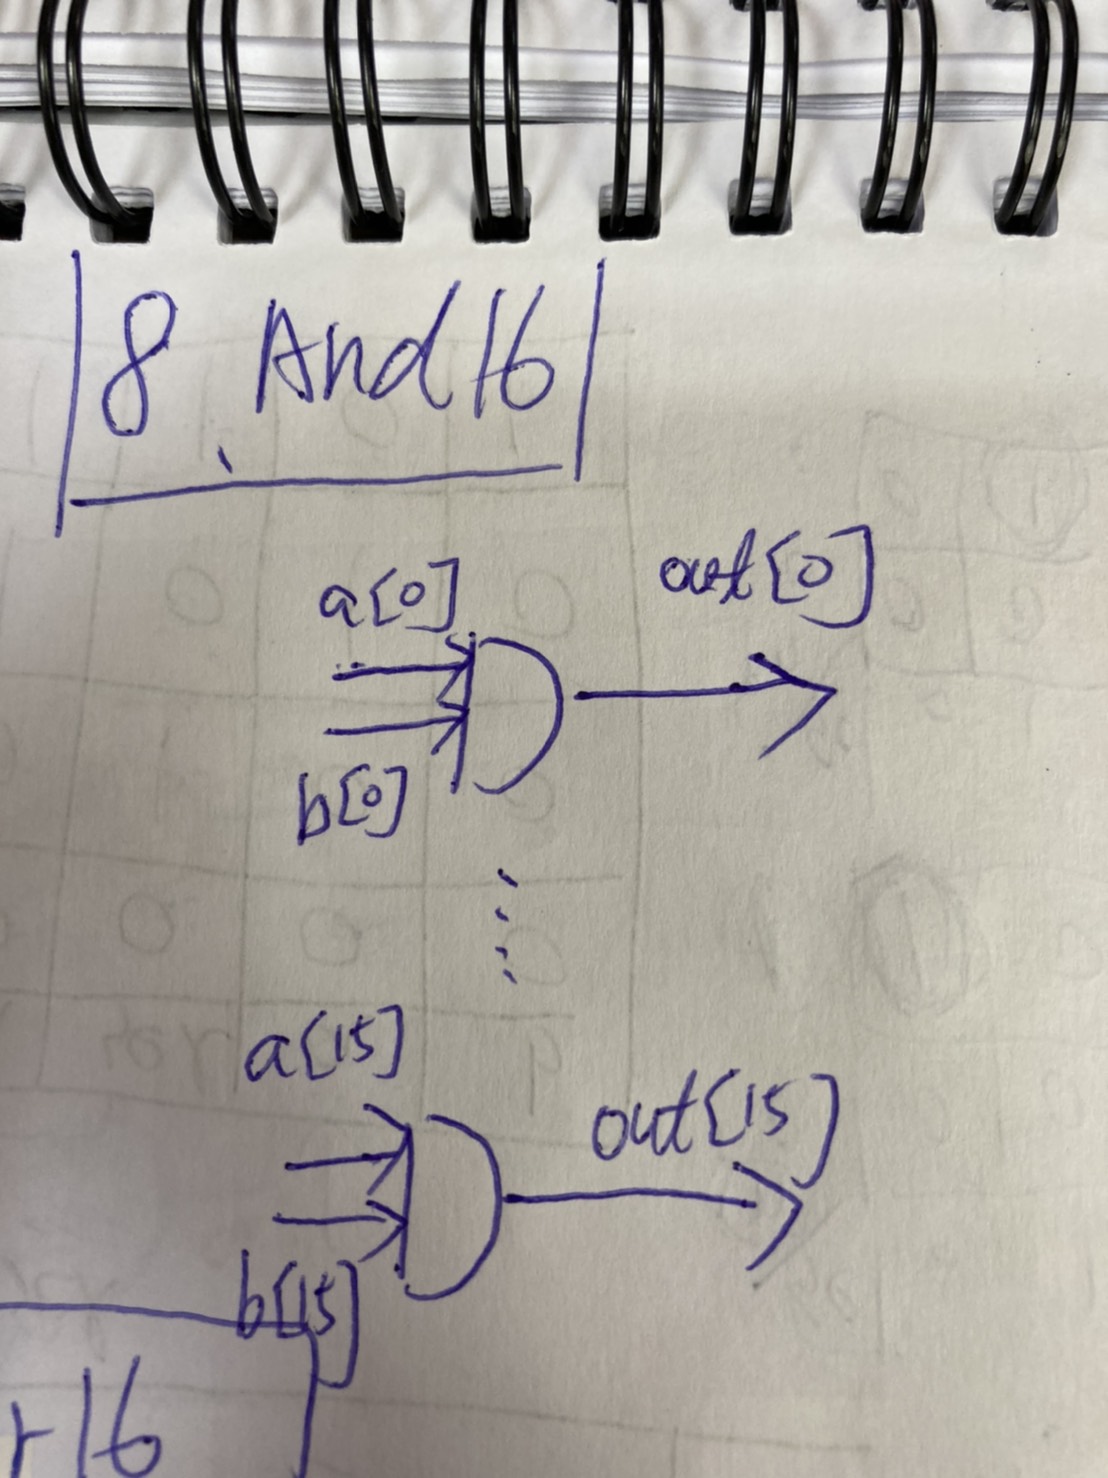 8. And16
a[0]
out[0]
b[0]
a[15]
out[15]
b[15]
r16